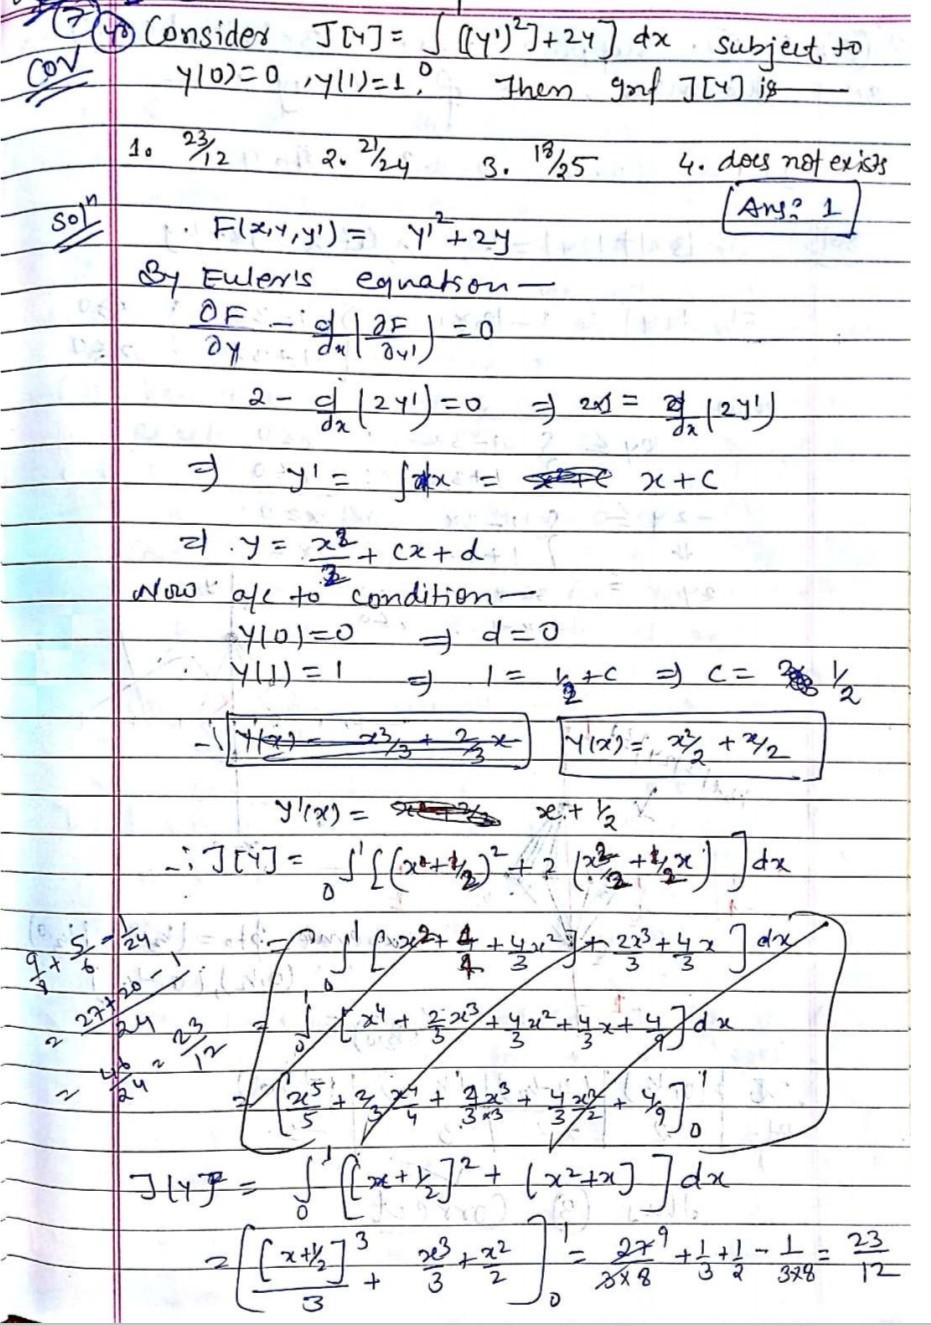 7 Consider J[y] = ∫ [(y')²]+2y] dx subject to
COV y(0)=0, y(1)=1. Then Inf J[y] is
1. 23/12 2. 21/24 3. 18/25 4. does not exists
Ans: 1
Solⁿ F(x,y,y') = y'² + 2y
By Euler's equation —
∂F/∂y − d/dx (∂F/∂y') = 0
2 − d/dx (2y') = 0 ⇒ 2 = d/dx (2y')
⇒ y' = ∫dx = x + c
⇒ y = x²/2 + cx + d
Now a/c to condition —
y(0)=0 ⇒ d=0
y(1)=1 ⇒ 1 = 1/2 + c ⇒ c = 1/2
∴ y(x) = x³/3 + 2/3 x y(x) = x²/2 + x/2
y'(x) = x + 1/2
∴ J[y] = ₀∫¹ [(x + 1/2)² + 2 (x²/2 + 1/2 x)] dx
= ₀∫¹ [x² + 4/4 + 4/3 x²] + 2x³/3 + 4/3 x] dx
9/8 + 5/6 − 1/24
= 27+20−1/24
= 46/24 = 23/12
= ₀∫¹ [x⁴ + 2/3 x³ + 4/3 x² + 4/3 x + 4/9] dx
= [x⁵/5 + 2/3 x⁴/4 + 4/3 x³/×3 + 4/3 x²/2 + 4/9]₀¹
J[y] = ₀∫¹ [[x + 1/2]² + (x² + x)] dx
= [[x+1/2]³/3 + x³/3 + x²/2]₀¹ = 27 9/3×8 + 1/3 + 1/2 − 1/3×8 = 23/12